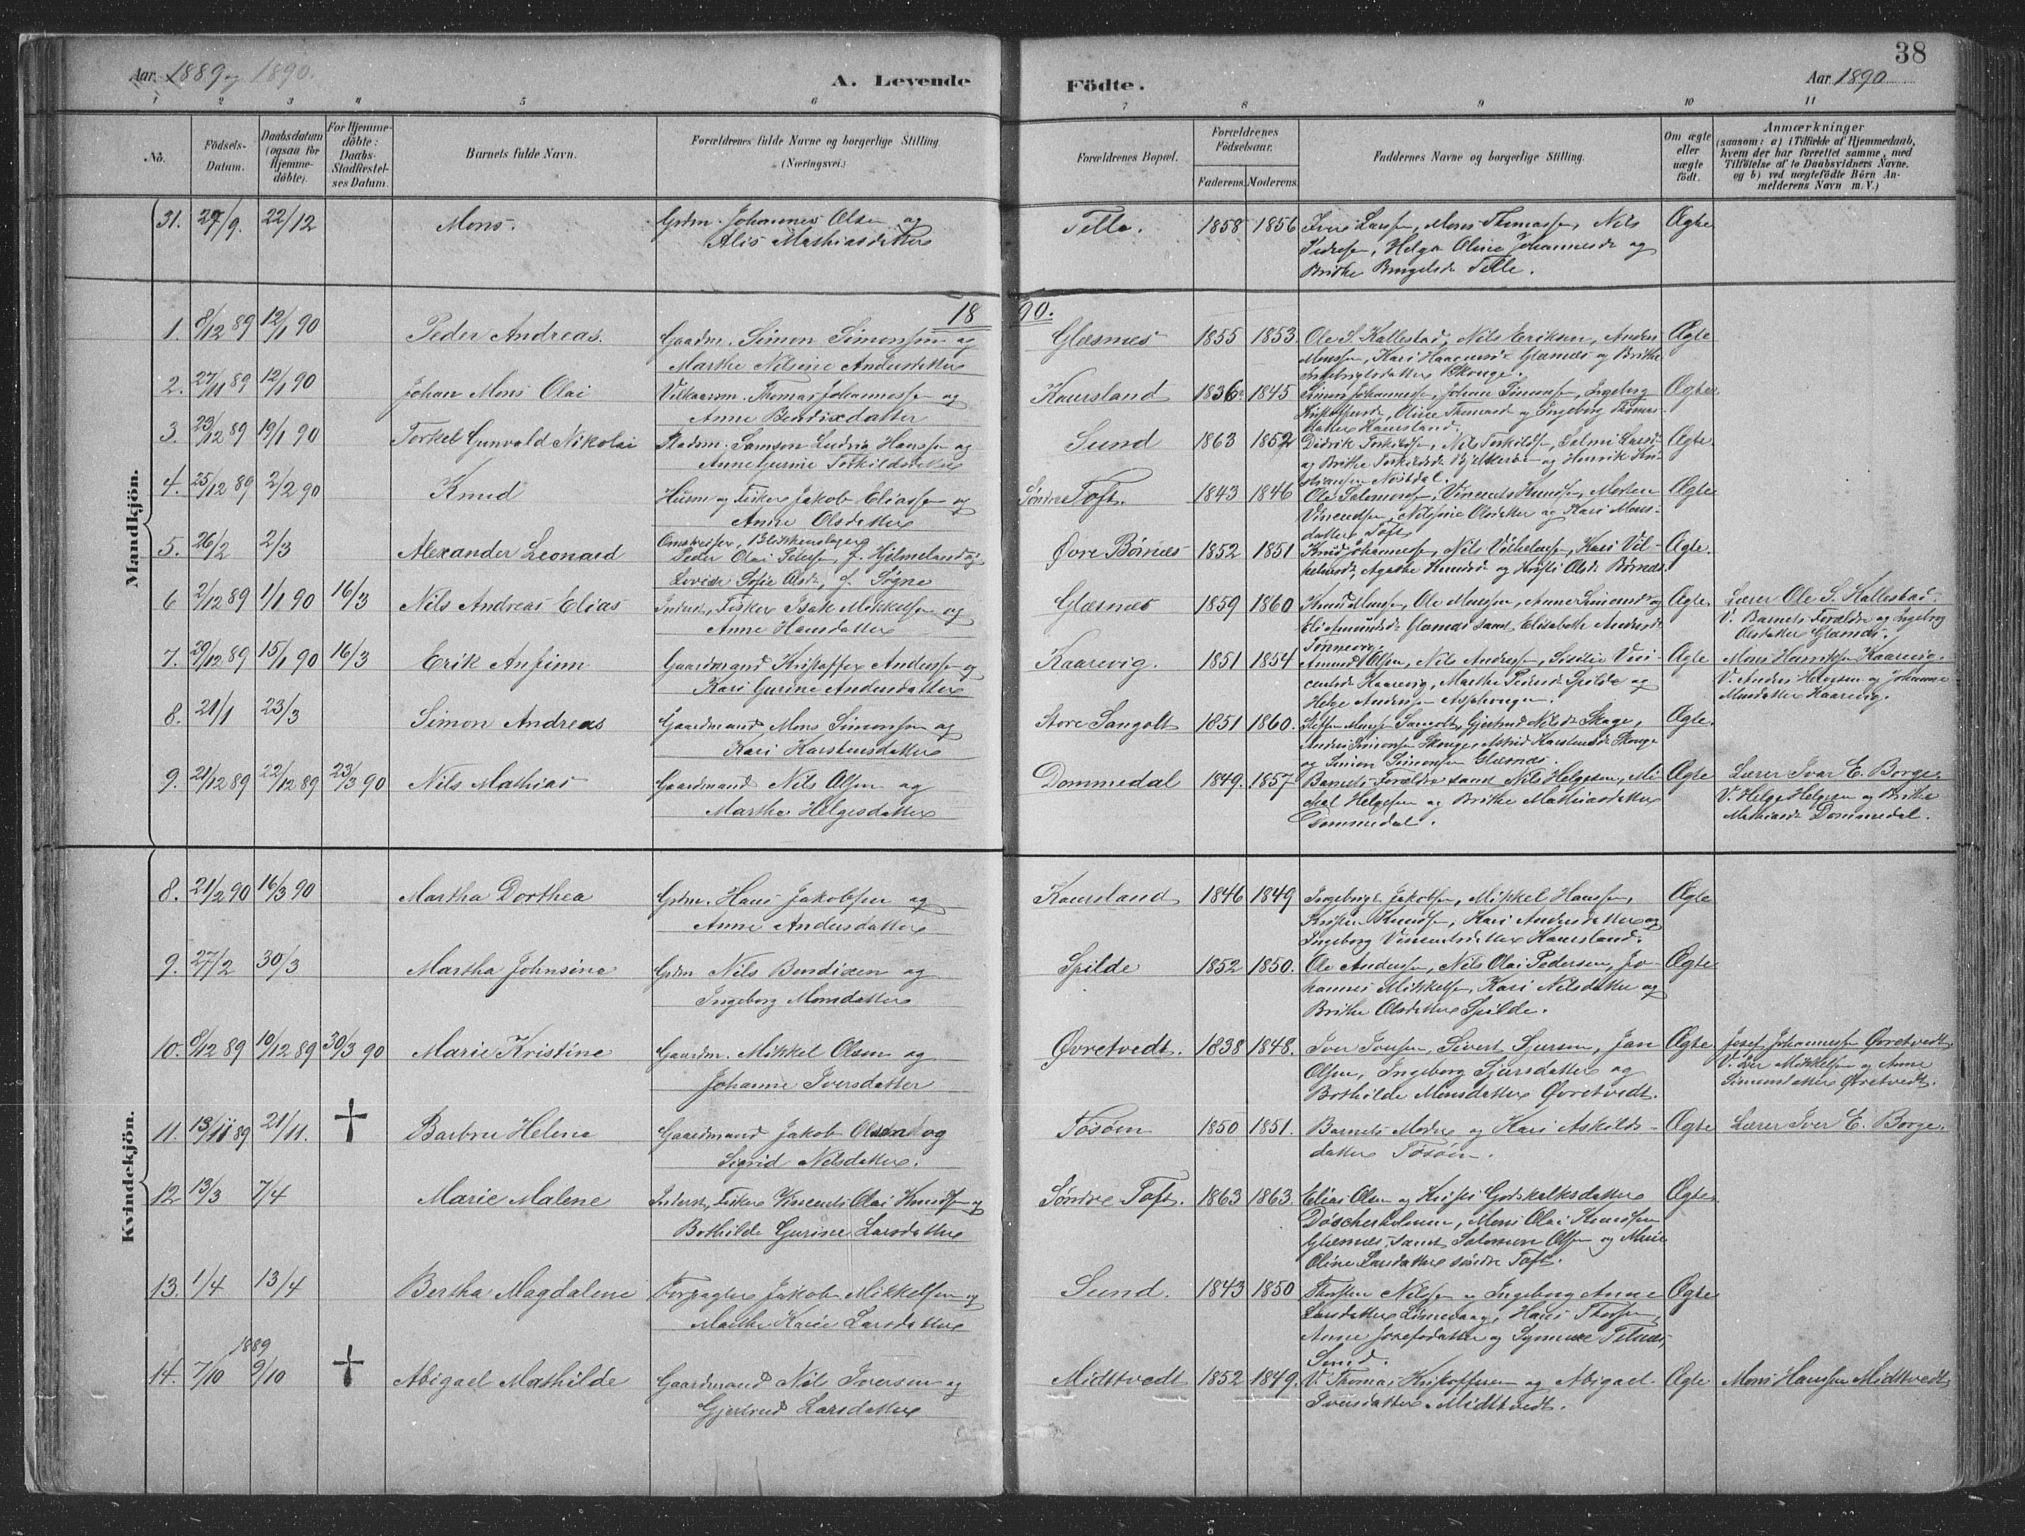 Aar. 1889 og 1890.
A. Levende
Födte.
Aar 1890
38
1 2 3 4 5 6 7 8 9 10 11
No.
Födsels-Datum.
Daabsdatum (ogsaa for Hjemme-döbte).
For Hjemme-döbte: Daabs-Stadfæstel-ses Datum.
Barnets fulde Navn.
Forældrenes fulde Navne og borgerlige Stilling (Næringsvei.)
Forældrenes Bopæl.
Forældrenes Födselsaar.
Faderens. Moderens.
Faddernes Navne og borgerlige Stilling.
Om ægte eller uægte födt.
Anmærkninger
(saasom: a) i Tilfælde af Hjemmedaab,
hvem der har forrettet samme, med
Tilföielse af to Daabsvidners Navne.
og b) ved uægtefödte Börn An-
melderens Navn m. V.)
Mandkjön.
31. 27/9. 22/12 Mons. Grdm. Johannes Olsen og Telle. 1858 1856 Iver Larsen, Mons Thomassen, Nils Ægte
Alis Mathiasdatter Pedersen, Helga Oline Johannesd. og
Brithe Brugelsd. Telle.
1890.
1. 8/12 89 12/1 90 Peder Andreas. Gaardm. Simon Simonsen og Glesnes 1855 1853. Ole S. Kallestad, Nils Eriksen, Anders Ægte
Marthe Nilsine Andersdatter Monssen, Kari Haagensd. Glesnes og Brithe
Skoge.
2. 27/11 89 12/1 90 Johan Mons Olai Thomas Johannessen og Kausland 1836 1845 Simon Johannessen, Johan Simonsen, Ingeborg Ægte
Anne Bendixdatter Oline Thomasd. og Ingeborg Thomas-
datter Kausland.
3. 23/12 89 19/1 90 Torkel Gunvald Nikolai Pladsm. Samson Ludvig Hanssen og Sund 1863 1852 Didrik Torkildsen, Nils Torkildsen, Ægte
Anne Gurine Torkildsdatter og Brithe Torkildsd. og Henrik
4. 25/12 89 2/2 90 Knud Husm. og Fisker Jakob Eliassen og Söndre Toft. 1843 1846 Ole Salomonsen, Vincents Knudsen, Morten Ægte
Anne Olsdatter Vincentsen, Nilsine Olsdatter og Kari Mons-
datter Toft
5. 26/2 2/3 Alexander Leonard Omreisende Blikkenslager Øvre Børnes 1852 1851 Knud Johannessen, Nils Vilhelmsen, Kari Vil- Ægte.
Peder Olai Petersen, f. Hjelmeland og helmsd., Agathe Knudsd. og Kristi Olsd. Børnes
Lovise Sofie Olsd., f. Sogne
6 2/12 89 1/1 90 16/3 Nils Andreas Elias Inderst, Fisker Isak Mikkelsen og Glesnes 1859 1860. Knud Monsen, Ole Monsen, Anne Simonsd. og Ægte. Lærer Ole S. Kallestad.
Anne Hansdatter Glesnes samt Elisabeth Andersd. V. Barnets Forældre og Ingeborg
Tønnevig. Olsdatter Glesnes.
7. 29/12 89 15/1 90 16/3 Erik Anfinn Gaardmand Kristoffer Anderssen og Kaarevig. 1851 1854 Amund Olsen, Nils Anderssen, Sisilie Vin- Ægte Mons Henriksen Kaarevig.
Kari Gurine Andersdatter centsd. Kaarevig, Marthe Pedersd. Spilde og V. Anders Helgesen og Johanne
Helge Anderssen Monsdatter Kaarevig.
8. 21/1 23/3 Simon Andreas Gaardmand Mons Simonsen og Store Sangolt 1851 1860. Steffen Monsen Sangolt, Gjertrud Nilsd. Skoge, Ægte.
Kari Karstensdatter Anders Simonsen Skoge, Astrid Karstensd. Skoge
og Simon Simonsen Glesnes.
9. 21/12 89 22/12 89 23/3 90 Nils Mathias Gaardmand Nils Olsen og Dommedal 1849. 1857 Barnets Forældre samt Nils Helgesen, Mi- Ægte Lærer Ivar E. Borge.
Martha Helgesdatter kal Helgesen og Brithe Mathiasdatter V. Helge Helgesen og Brithe
Dommedal. Mathiasd. Dommedal.
Kvindekjön.
8. 21/2 90 16/3 90 Martha Dorthea Grdm. Hans Jakobsen og Kausland 1846 1849 Ingebrigt Jakobsen, Mikkel Hanssen, Ægte
Anne Andersdatter Kristen Knudsen, Kari Andersdatter og
Ingeborg Vincentsdatter Kausland.
9. 27/2 30/3 Martha Johnsine Grdm Nils Bendixen og Spilde 1852 1850. Ole Anderssen, Nils Olai Pedersen, Jo- Ægte
Ingeborg Monsdatter hannes Mikkelsen, Kari Nilsdatter og
Brithe Olsdatter Spilde.
10. 8/12 89 10/12 89 30/3 90 Marie Kristine Gaardm. Mikkel Olsen og Øvretvedt. 1838 1848. Iver Iversen, Sivert Sjursen, Jan Ægte Josef Johannessen Øvretvedt.
Johanne Iversdatter Olsen, Ingeborg Sjursdatter og V. Iver Mikkelsen og Anne
Bothilde Monsdatter Øvretvedt. Simonsdatter Øvretvedt.
11. 13/11 89 21/11. † Barbru Helene Gaardmand Jakob Olsen og Tosöen 1850 1851. Barnets Moder og Kari Askilds- Ægte Lærer Iver E. Borge.
Sigrid Nilsdatter. datter Tosöen.
12 13/3 7/4 Marie Malene Inderst, Fisker Vincents Olai Knudsen og Söndre Toft. 1863 1863. Elias Olsen og Kristi Godskalksdatter Ægte
Bothilde Gurine Larsdatter Döscherholmen, Mons Olai Knudsen
Glesnes, samt Salomon Olsen og Marie
Oline Larsdatter söndre Toft.
13. 1/4 13/4 Bertha Magdalene Forpagter Jakob Mikkelsen og Sund. 1843 1850 Thorsten Nilsen og Ingeborg Anne Ægte
Marthe Karie Larsdatter Larsdatter, Hans Thorsen,
Anne Josefsdatter og
Sund.
14. 7/10 1889 9/10 † Abigael Mathilde Gaardmand Nils Iversen og Midttvedt 1852 1849. V. Thomas Kristoffersen og Abigael Ægte Mons Hanssen Midttvedt
Gjertrud Larsdatter Iversdatter Midttvedt.